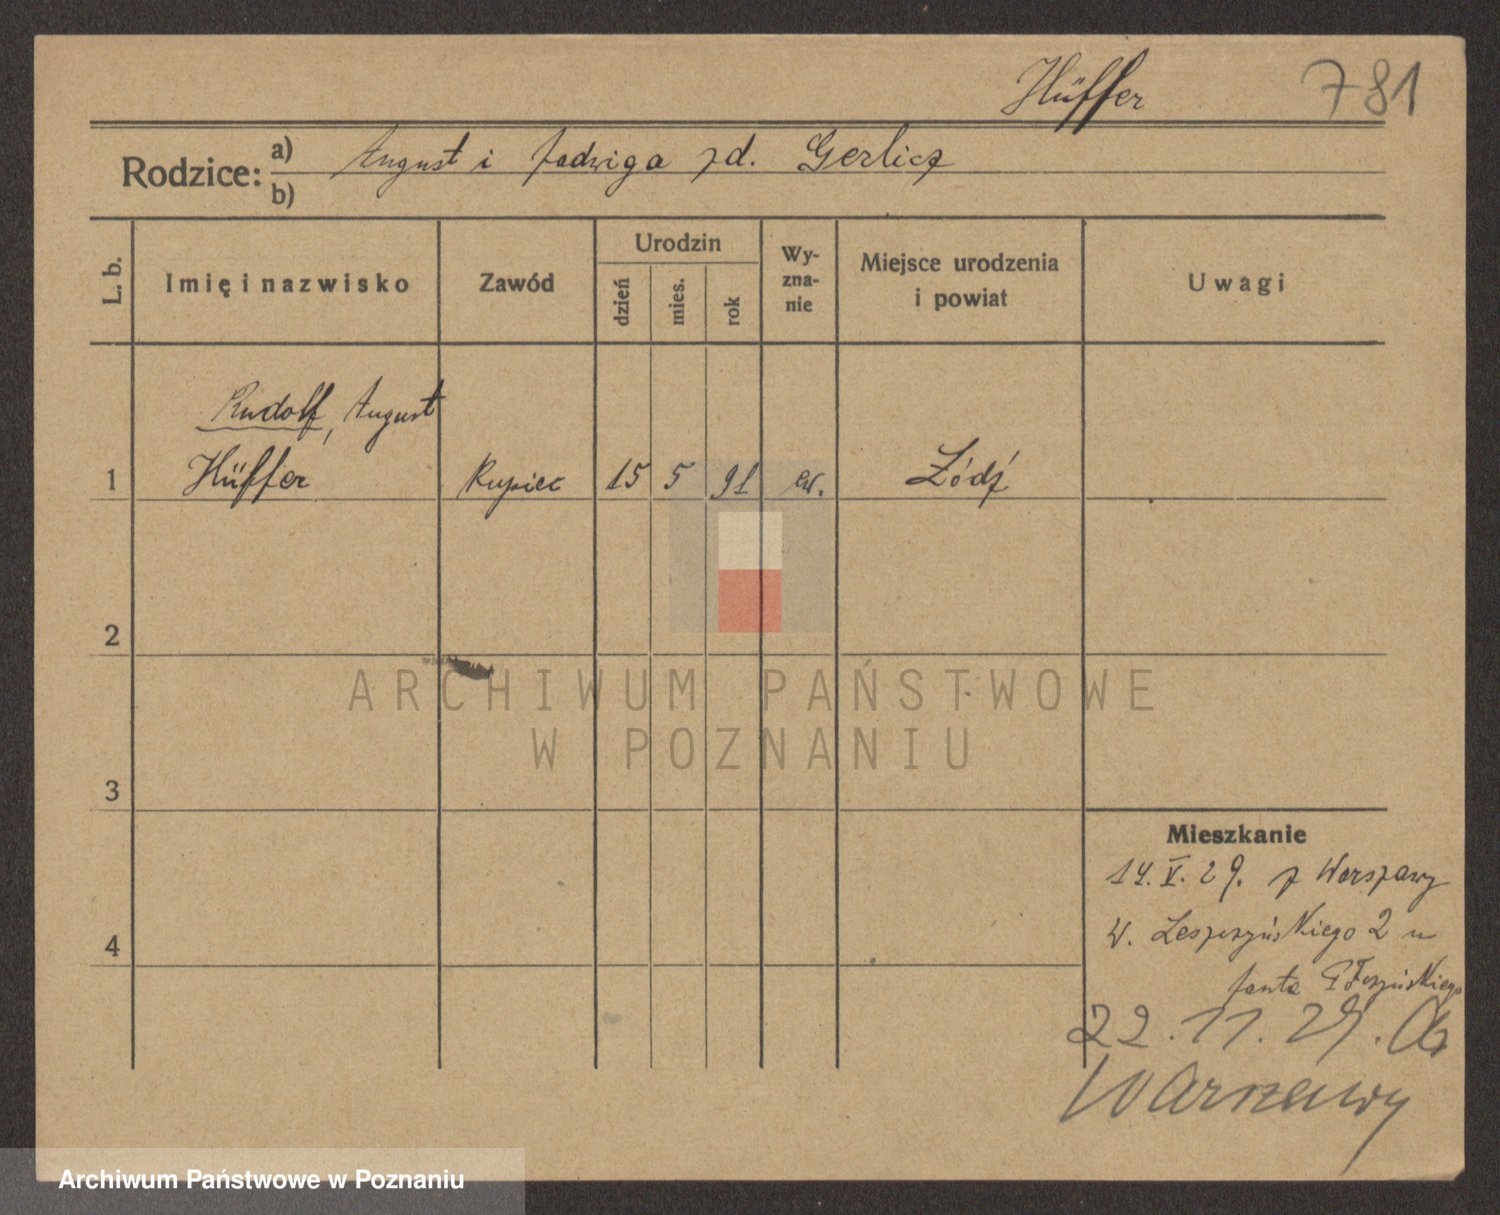 Hüffer 781
Rodzice: a) August i Jadwiga zd. Gerlicz
b)
L. b. Imię i nazwisko Zawód Urodzin dzień mies. rok Wy-zna-nie Miejsce urodzenia i powiat Uwagi
Rudolf, August
1 Hüffer Kupiec 15 5 91 ew. Łódź
2
ARCHIWUM PAŃSTWOWE
W POZNANIU
3
Mieszkanie
14.V.29. z Warszawy
W. Leszczyńskiego 2 u
4
22.11.29.
Warszawy
Archiwum Państwowe w Poznaniu